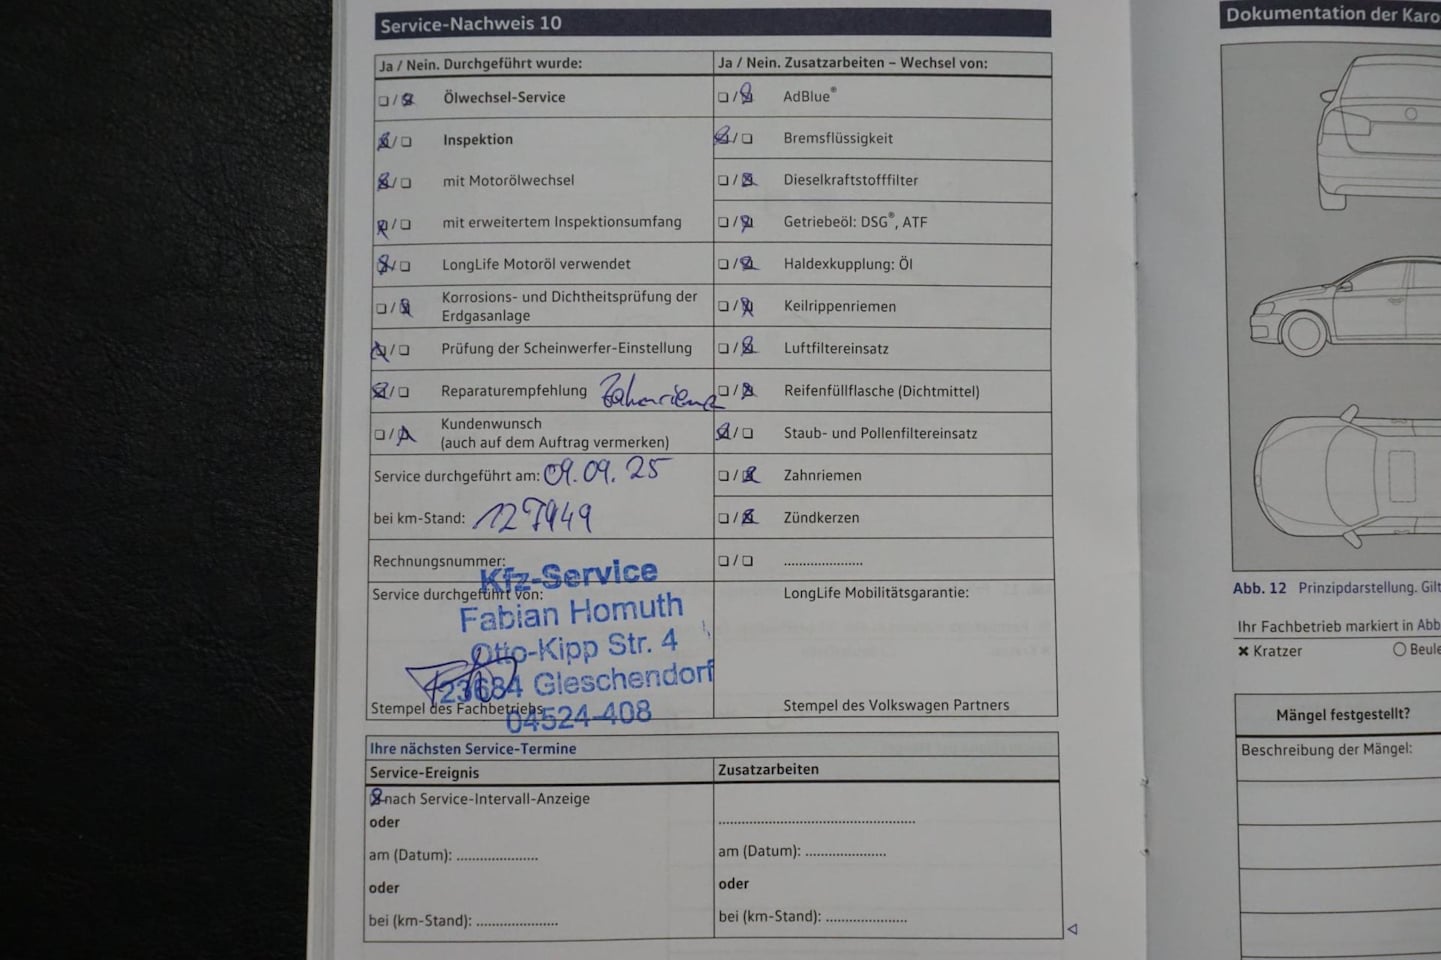 Service-Nachweis 10
Ja / Nein. Durchgeführt wurde:
❏ / ❏ Ölwechsel-Service
❏ / ❏ Inspektion
❏ / ❏ mit Motorölwechsel
❏ / ❏ mit erweitertem Inspektionsumfang
❏ / ❏ LongLife Motoröl verwendet
❏ / ❏ Korrosions- und Dichtheitsprüfung der
Erdgasanlage
❏ / ❏ Prüfung der Scheinwerfer-Einstellung
❏ / ❏ Reparaturempfehlung Zahnriemen
❏ / ❏ Kundenwunsch
(auch auf dem Auftrag vermerken)
Service durchgeführt am: 09.09.25
bei km-Stand: 127949
Rechnungsnummer:
Service durchgeführt von:
Kfz-Service
Fabian Homuth
Otto-Kipp Str. 4
23684 Gleschendorf
04524-408
Stempel des Fachbetriebs
Ja / Nein. Zusatzarbeiten – Wechsel von:
❏ / ❏ AdBlue®
❏ / ❏ Bremsflüssigkeit
❏ / ❏ Dieselkraftstofffilter
❏ / ❏ Getriebeöl: DSG®, ATF
❏ / ❏ Haldexkupplung: Öl
❏ / ❏ Keilrippenriemen
❏ / ❏ Luftfiltereinsatz
❏ / ❏ Reifenfüllflasche (Dichtmittel)
❏ / ❏ Staub- und Pollenfiltereinsatz
❏ / ❏ Zahnriemen
❏ / ❏ Zündkerzen
❏ / ❏ .....................
LongLife Mobilitätsgarantie:
Stempel des Volkswagen Partners
Ihre nächsten Service-Termine
Service-Ereignis
❏ nach Service-Intervall-Anzeige
oder
am (Datum): .....................
oder
bei (km-Stand): .....................
Zusatzarbeiten
..................................................
am (Datum): .....................
oder
bei (km-Stand): .....................
Dokumentation der Karo
Abb. 12 Prinzipdarstellung. Gilt
Ihr Fachbetrieb markiert in Abb
✖ Kratzer ○ Beule
Mängel festgestellt?
Beschreibung der Mängel: